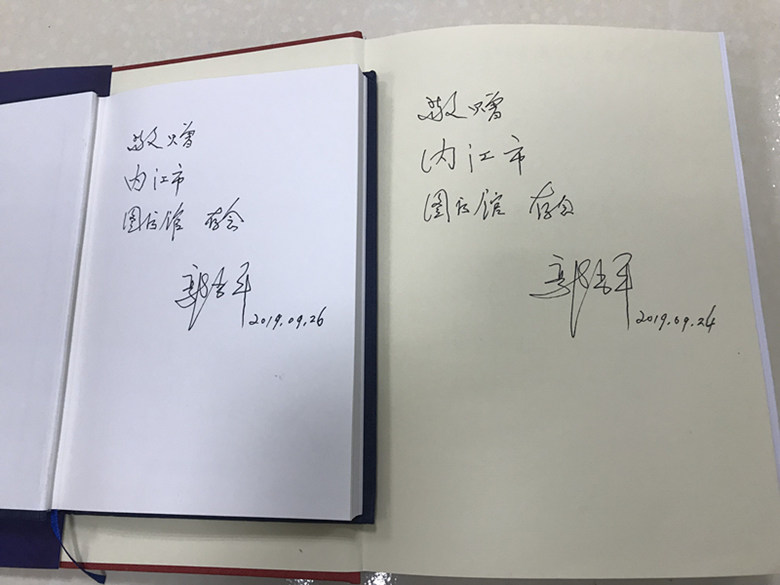 敬赠
内江市
图书馆 存念
2019.09.26
敬赠
内江市
图书馆 存念
2019.09.24